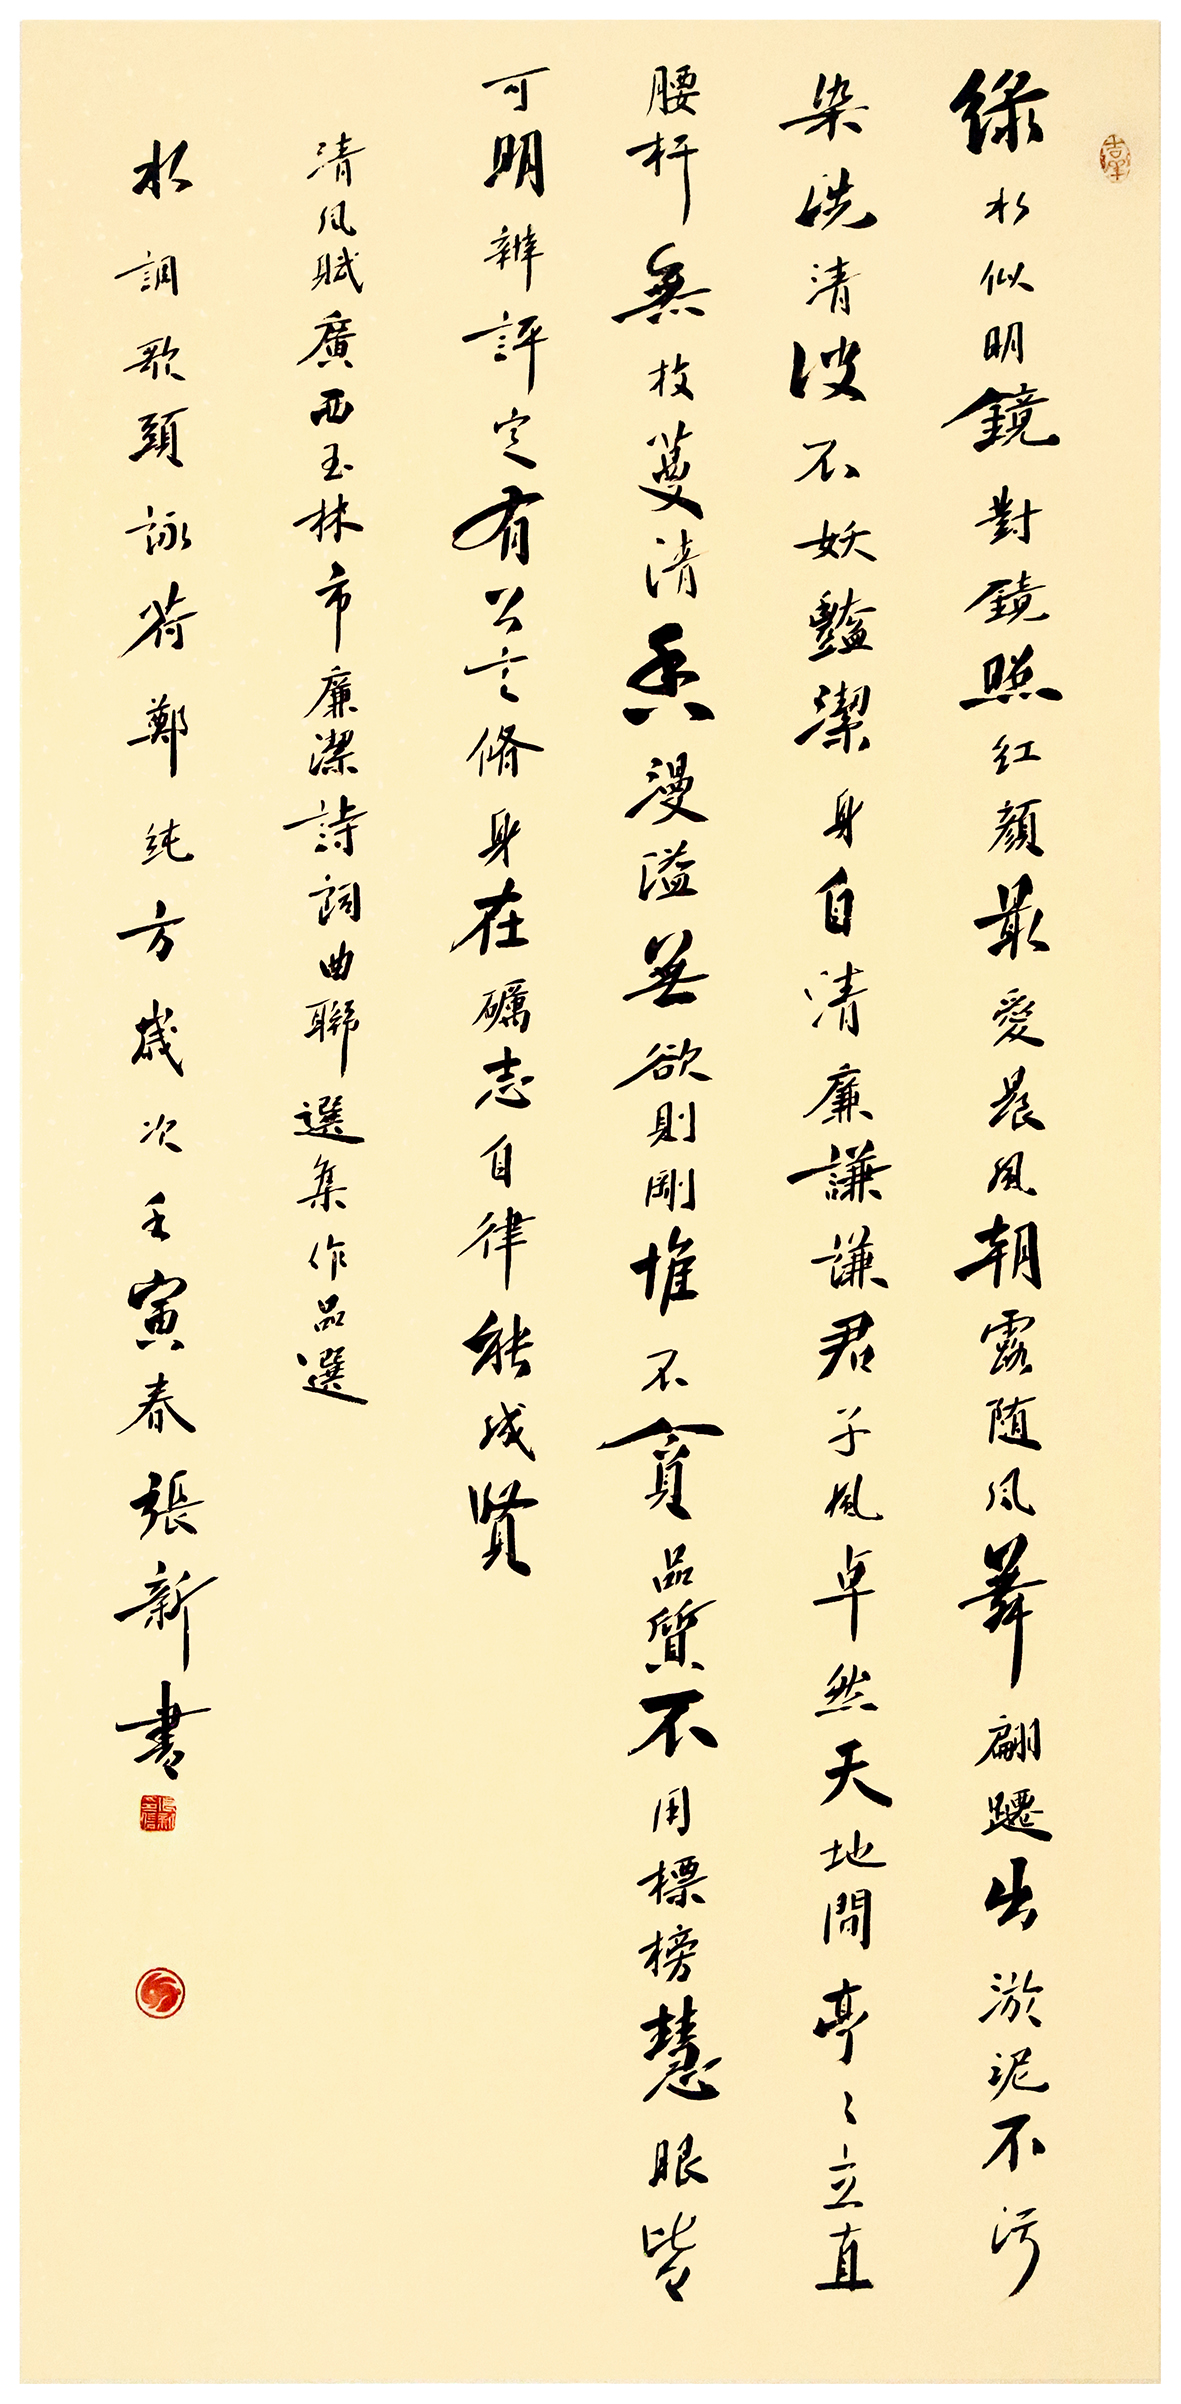 綠水似明鏡對鏡照红顏最愛晨風朝露随风舞翩躚出淤泥不污
染洗清波不妖豔潔身自清廉謙謙君子風卓然天地間亭々立直
腰杆無枝蔓清香漫溢無欲則剛堆不貪品質不用標榜慧眼皆
可明辨評定有公言脩身在礪志自律能成贤
清风賦廣西玉林市廉潔詩詞曲聯選集作品選
水調歌頭詠荷鄭纯方歲次壬寅春張新書